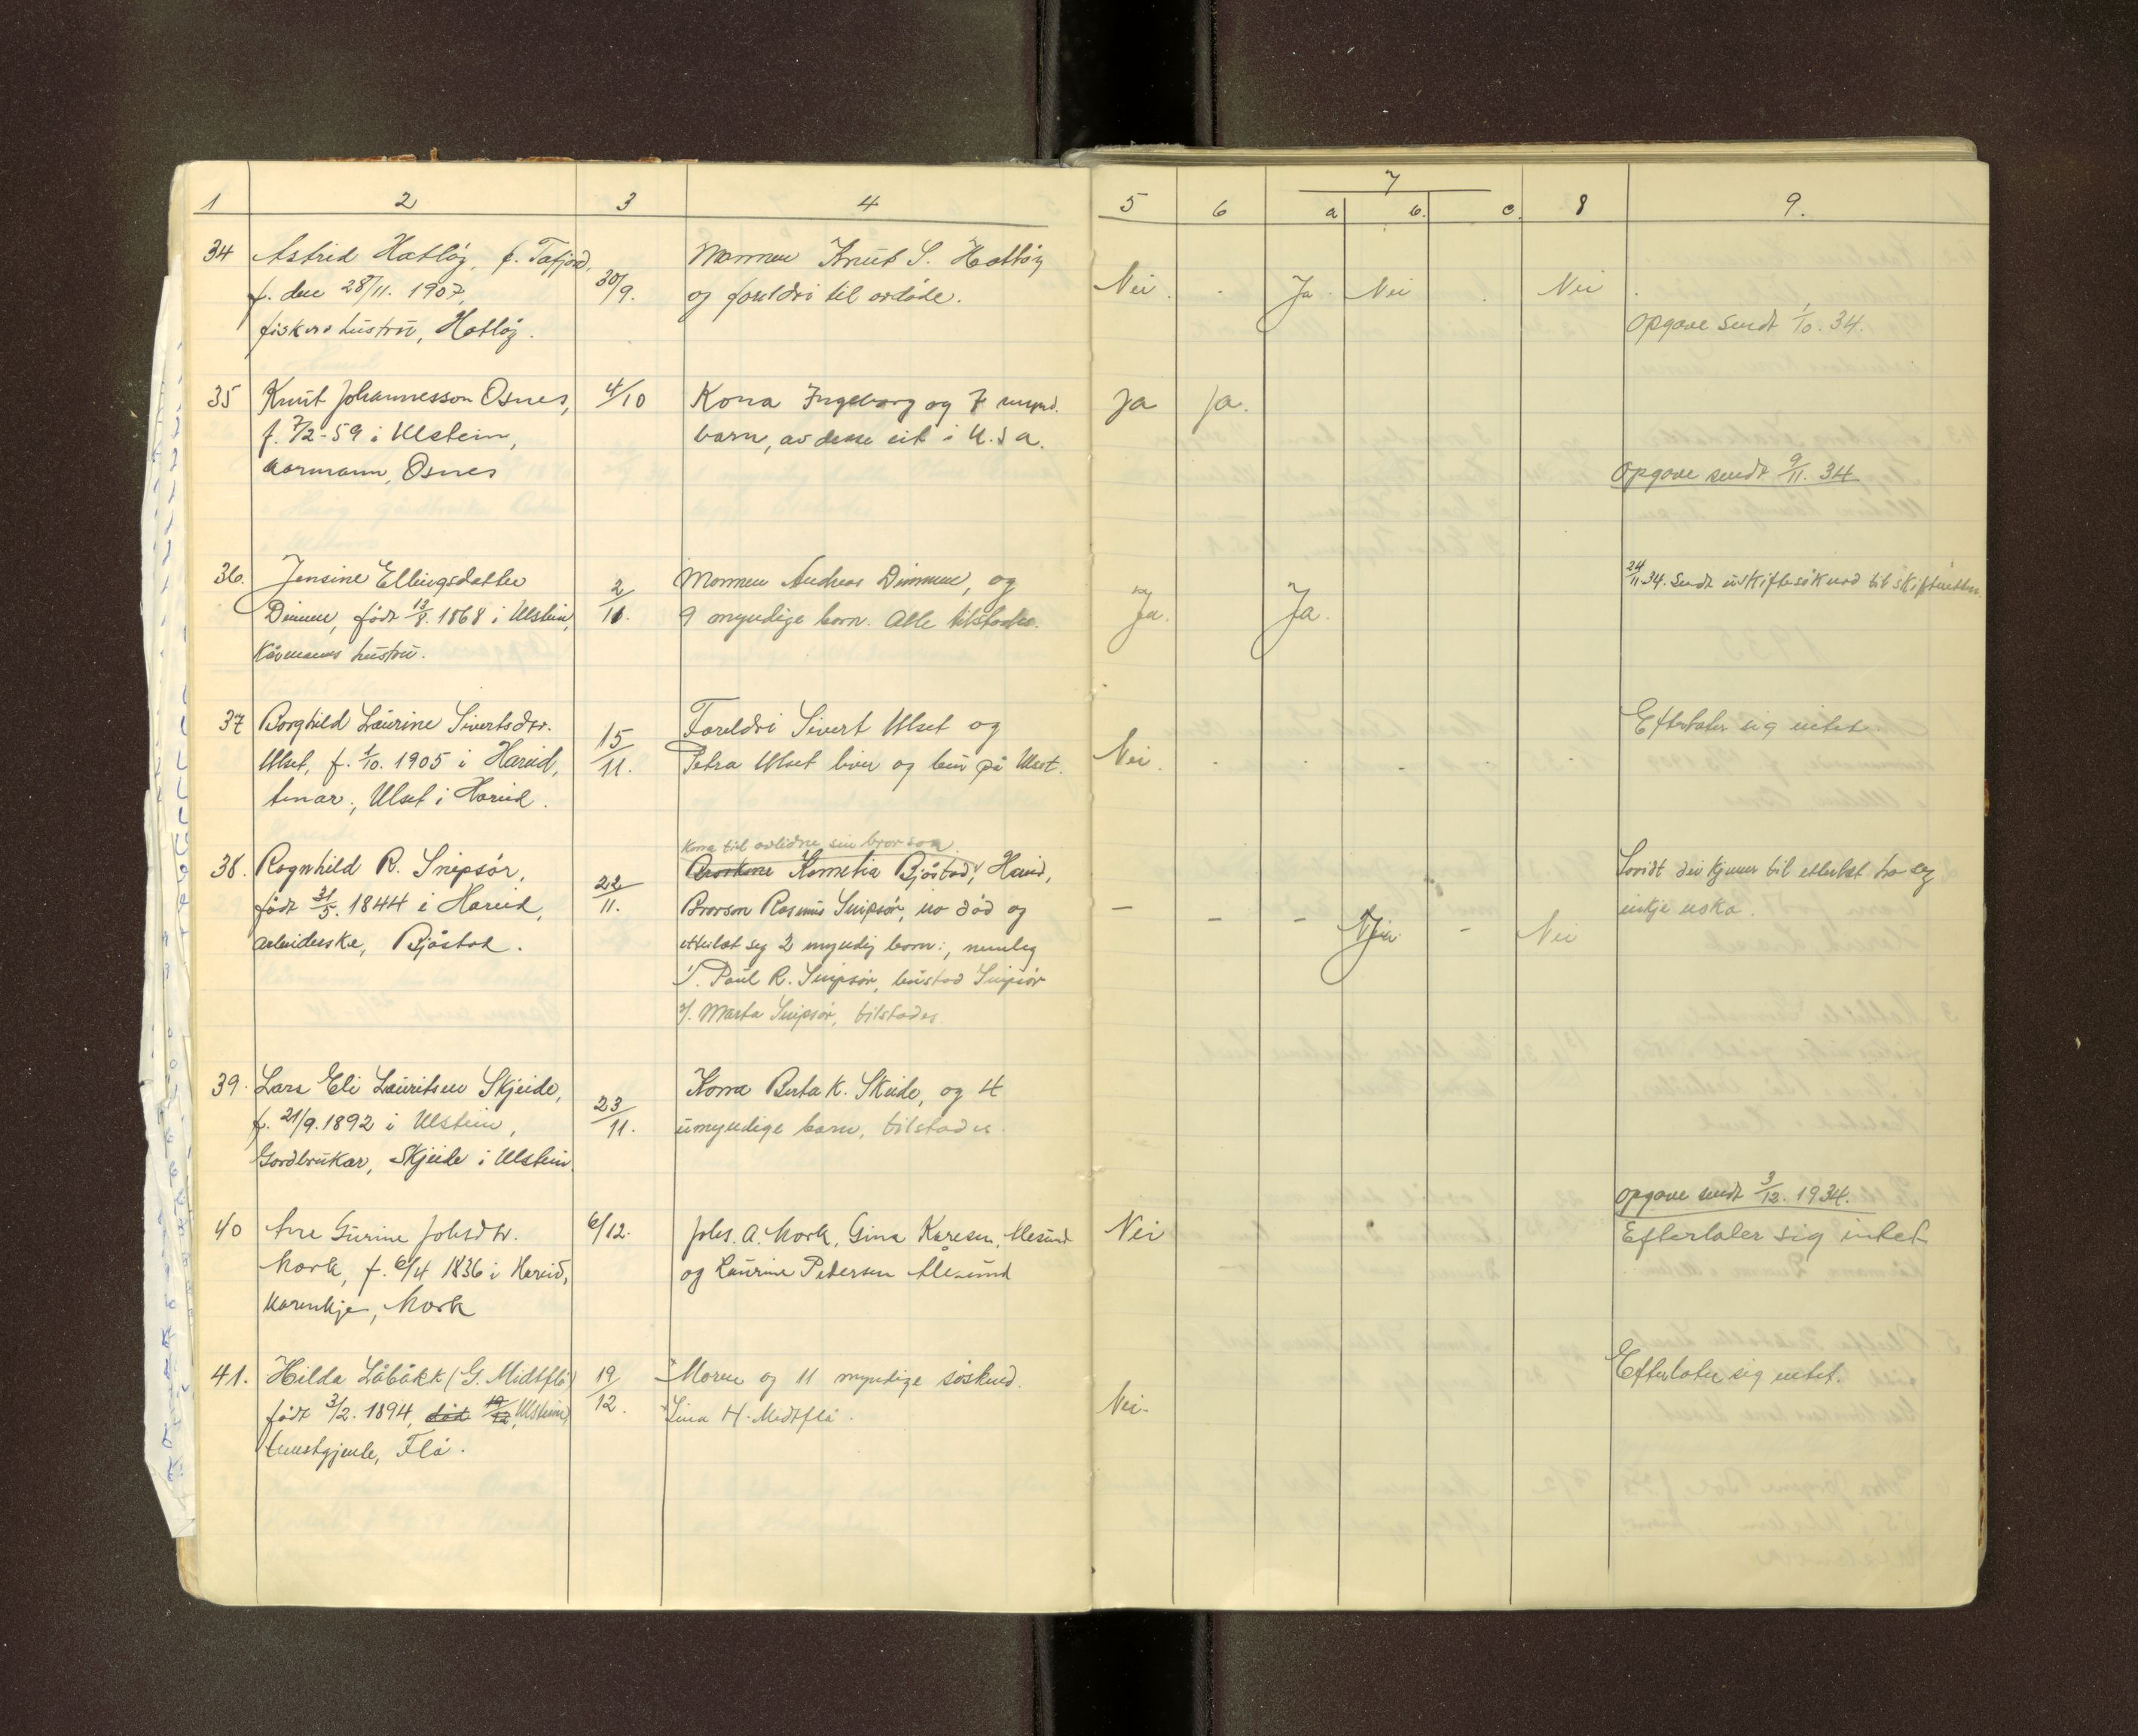 1 2 3 4 5 6 7 a b. c. 8 9.
34 Astrid Hatløy, f. Tafjord,
f. den 28/11. 1907,
fiskers hustru, Hatløy.
30/9.
Mannen Knut S. Hatløy
og foreldri til avdøde.
Nei . Ja. Nei . Nei .
Opgave sendt 1/10. 34.
35 Knut Johannesson Osnes,
f. 7/2-59 i Ulstein,
kårmann, Osnes
4/10
Kona Ingeborg og 7 mynd.
barn, av desse eit i U.S.A.
Ja Ja.
Opgave sendt 9/11. 34
36. Jensine Ellingsdatter
Dimmen, født 12/8. 1868 i Ulstein,
Kårmanns hustru.
2/11.
Mannen Andreas Dimmen, og
9 myndige born. Alle tilstades.
Ja. Ja.
24/11.34. Sendt uskiftesøknad til skifteretten.
37 Borghild Laurine Sivertsdtr.
Ulset, f. 1/10. 1905 i Hareid,
tenar, Ulset i Hareid.
15/11.
Foreldri Sivert Ulset og
Petra Ulset liver og bur på Ulset.
Nei. . . . . .
Efterlater sig intet.
38. Ragnhild R. Snipsør,
født 31/5. 1844 i Hareid,
arbeiderske, Bjåstad.
22/11.
Kona til avlidne sin brorson
Brorkone Kornelia Bjåstad, Hareid,
Brorson Rasmus Snipsør, no død og
etterlat seg 2 myndig born:, nemleg
1/. Paul R. Snipsør, bustad Snipsør
2/. Marta Snipsør, tilstades.
— - - Nei - Nei
Sovidt dei kjenner til etterlet ho seg
inkje noko.
39. Lars Eli Lauritsen Skjeide,
f. 21/9. 1892 i Ulstein,
Gardbrukar, Skjeide i Ulstein.
23/11.
Kona Berta K. Skeide, og 4
umyndige barn, tilstades.
Opgave sendt 3/12. 1934.
40 Ane Gurine Johsdtr.
Mork, f. 6/4 1836 i Hareid,
kårenkje, Mork
6/12.
Johs. A. Mork, Gina Karesen, Ålesund
og Laurine Petersen Ålesund
Nei
Efterlater sig intet
41. Hilda Låbakk (G. Midtflå)
født 3/2. 1894, død 19/12, Ulstein,
tenestgjente, Flå.
19/12.
Moren og 11 myndige søskend.
Lina H. Medtflå.
Nei-
Efterlater sig intet.